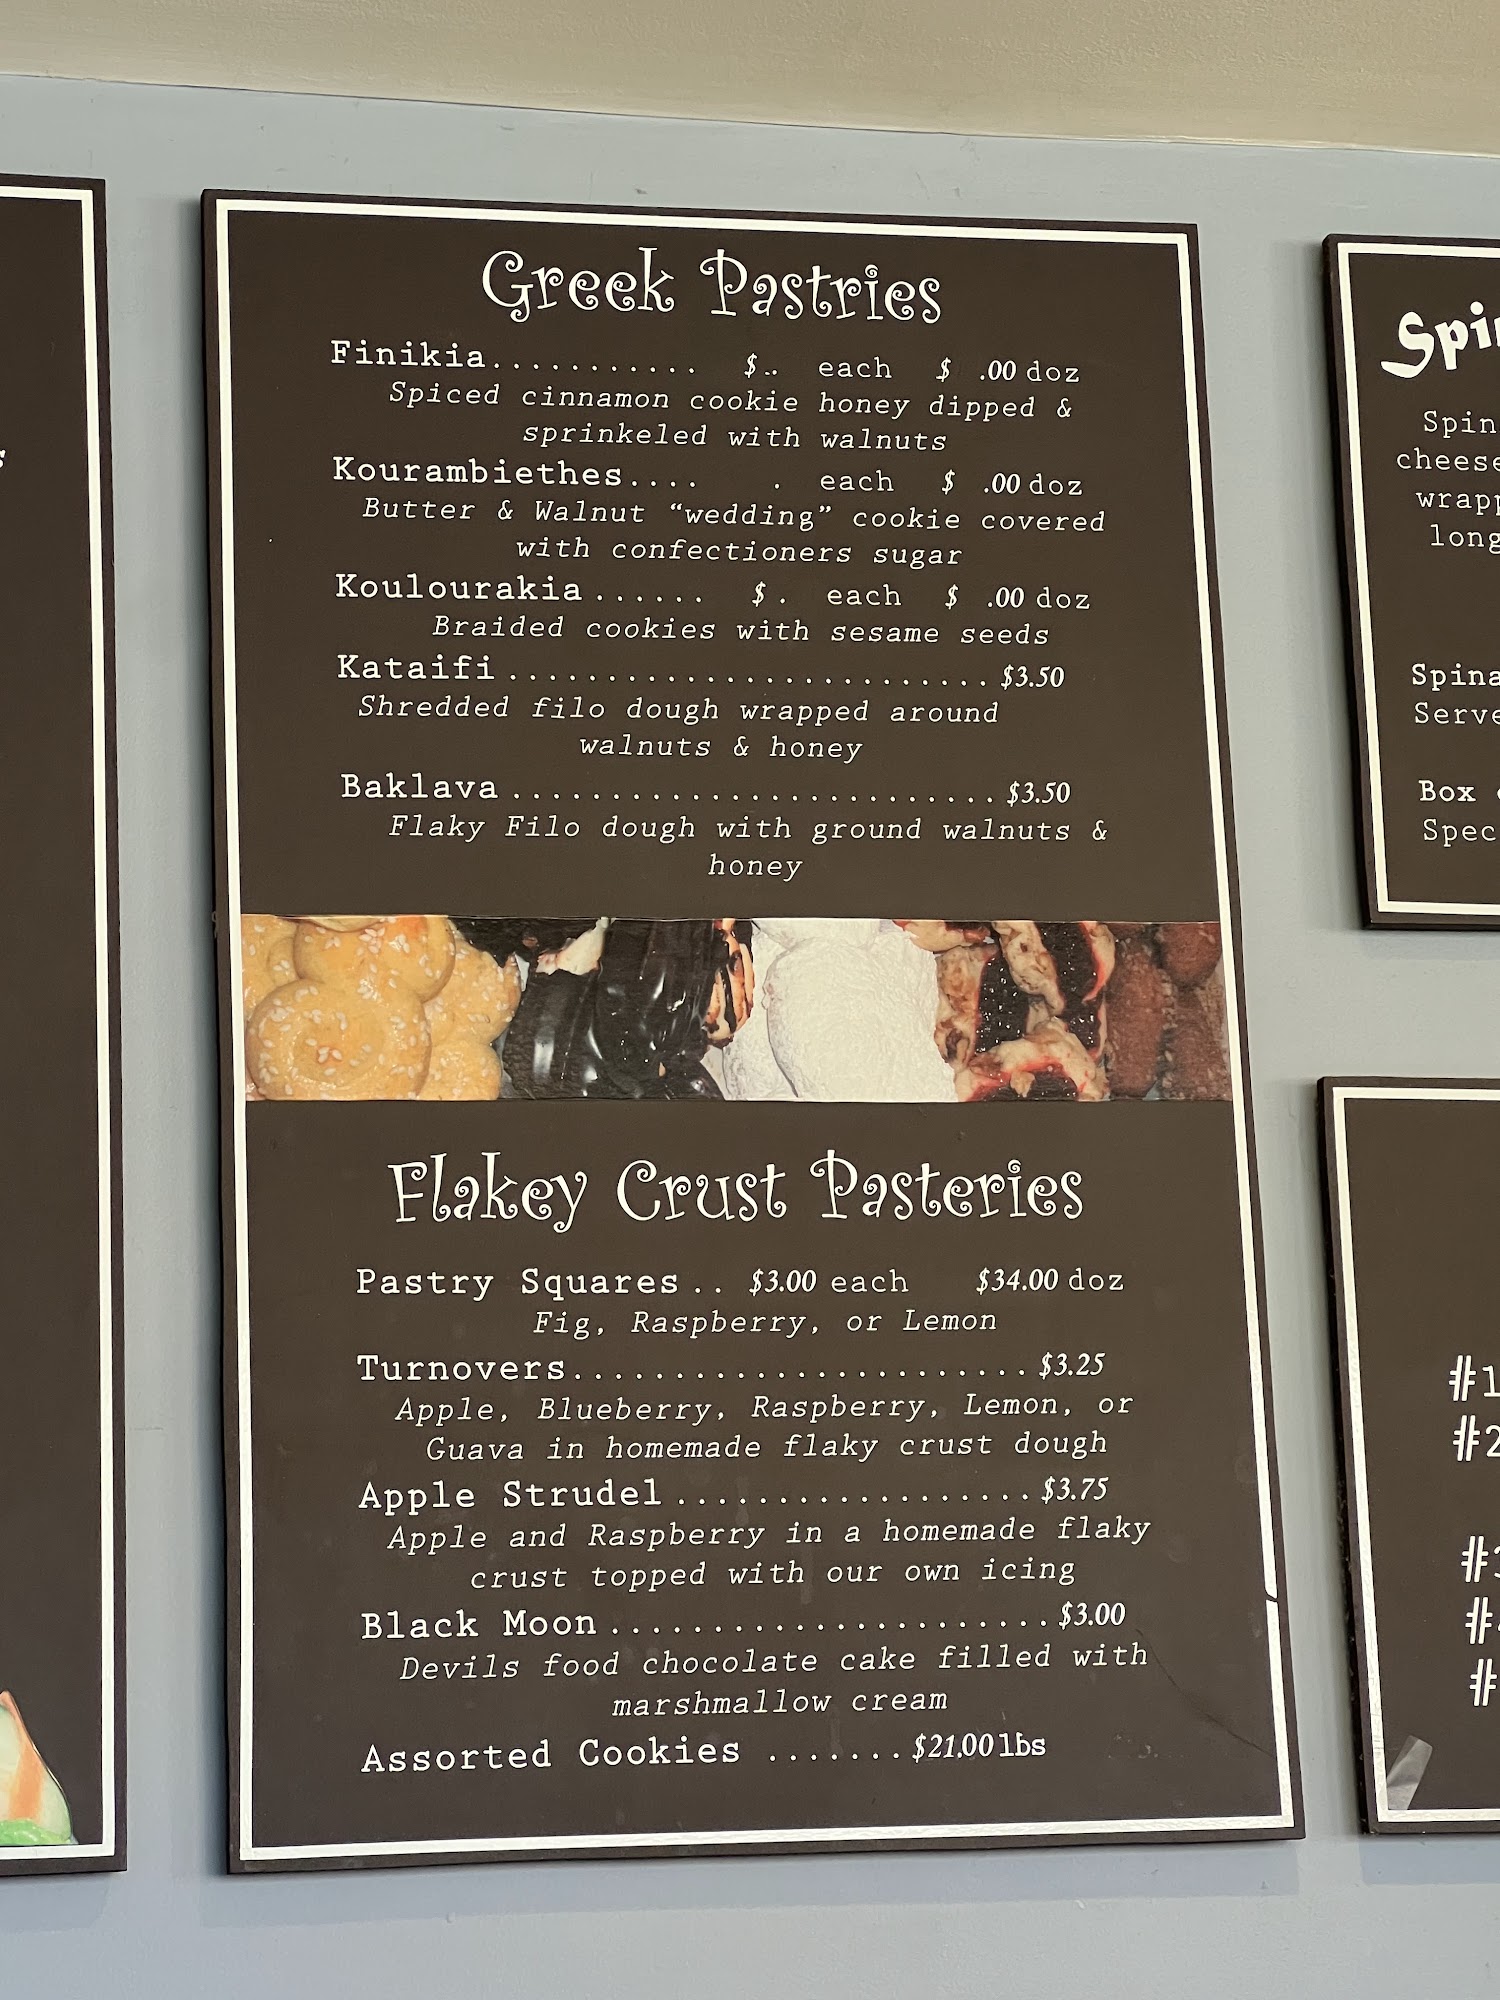 Greek Pastries
Finikia........... $.. each $ .00 doz
Spiced cinnamon cookie honey dipped &
sprinkeled with walnuts
Kourambiethes.... . each $ .00 doz
Butter & Walnut “wedding” cookie covered
with confectioners sugar
Koulourakia...... $. each $ .00 doz
Braided cookies with sesame seeds
Kataifi.........................$3.50
Shredded filo dough wrapped around
walnuts & honey
Baklava.........................$3.50
Flaky Filo dough with ground walnuts &
honey
Flakey Crust Pasteries
Pastry Squares.. $3.00 each $34.00 doz
Fig, Raspberry, or Lemon
Turnovers.......................$3.25
Apple, Blueberry, Raspberry, Lemon, or
Guava in homemade flaky crust dough
Apple Strudel..................$3.75
Apple and Raspberry in a homemade flaky
crust topped with our own icing
Black Moon......................$3.00
Devils food chocolate cake filled with
marshmallow cream
Assorted Cookies .......$21.00 lbs
Spin
cheese
wrapp
long
Spina
Serve
Box
Spec
#1
#2
#
#
#